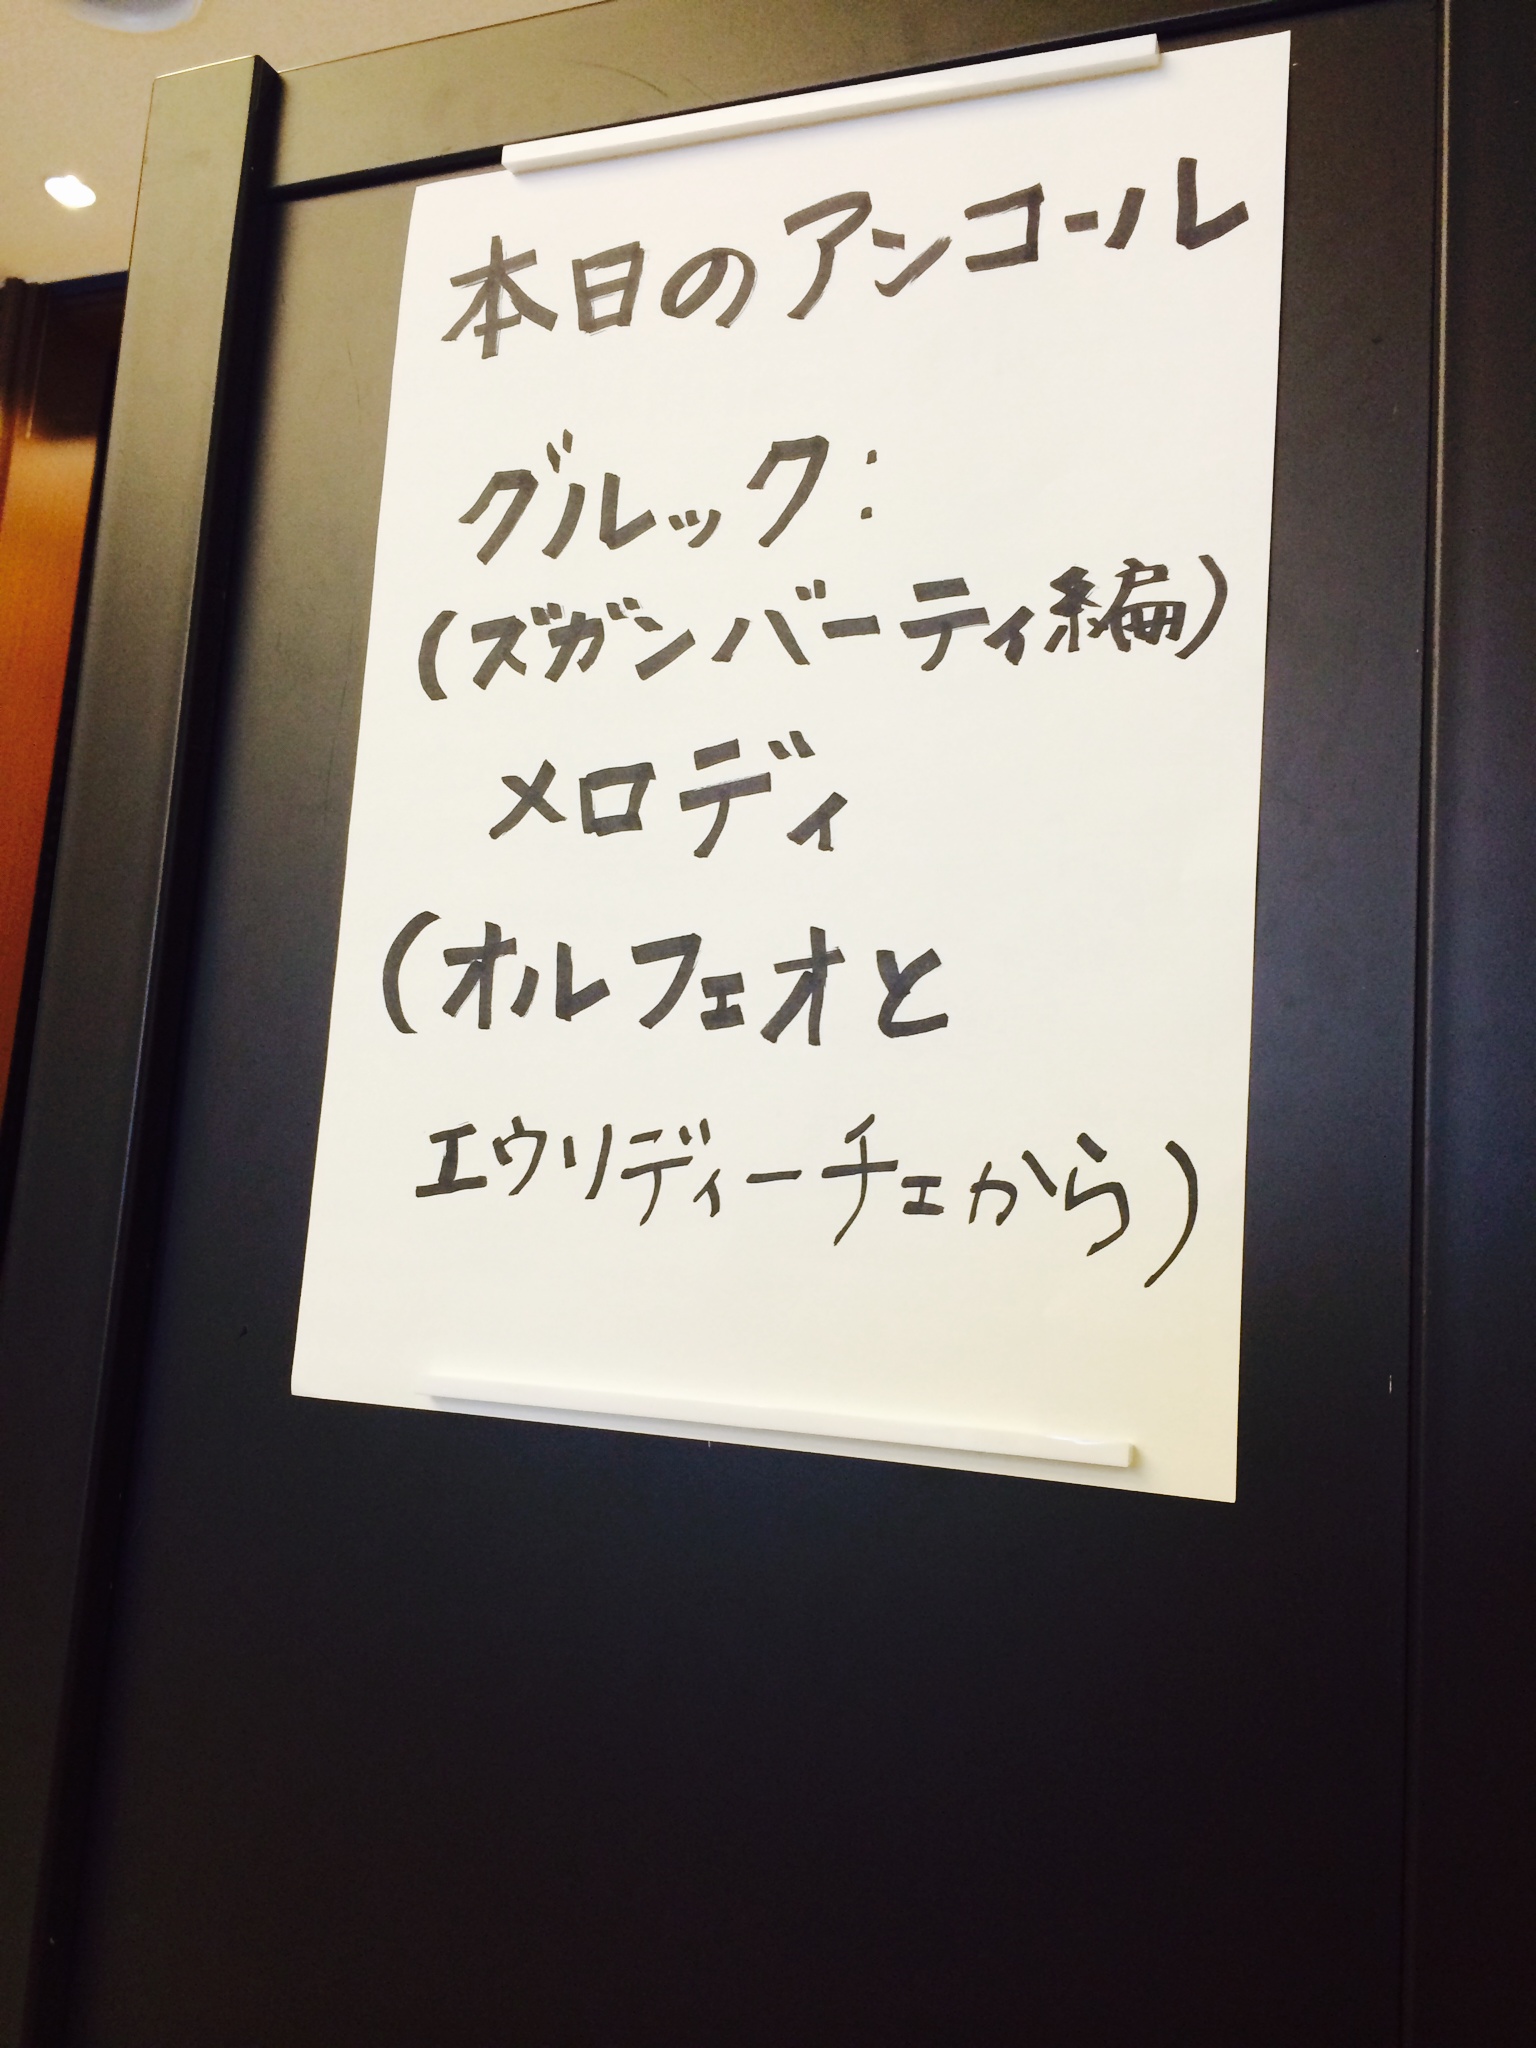 本日のアンコール
グルック:
(ズガンバーティ編)
メロディ
(オルフェオと
エウリディーチェから)